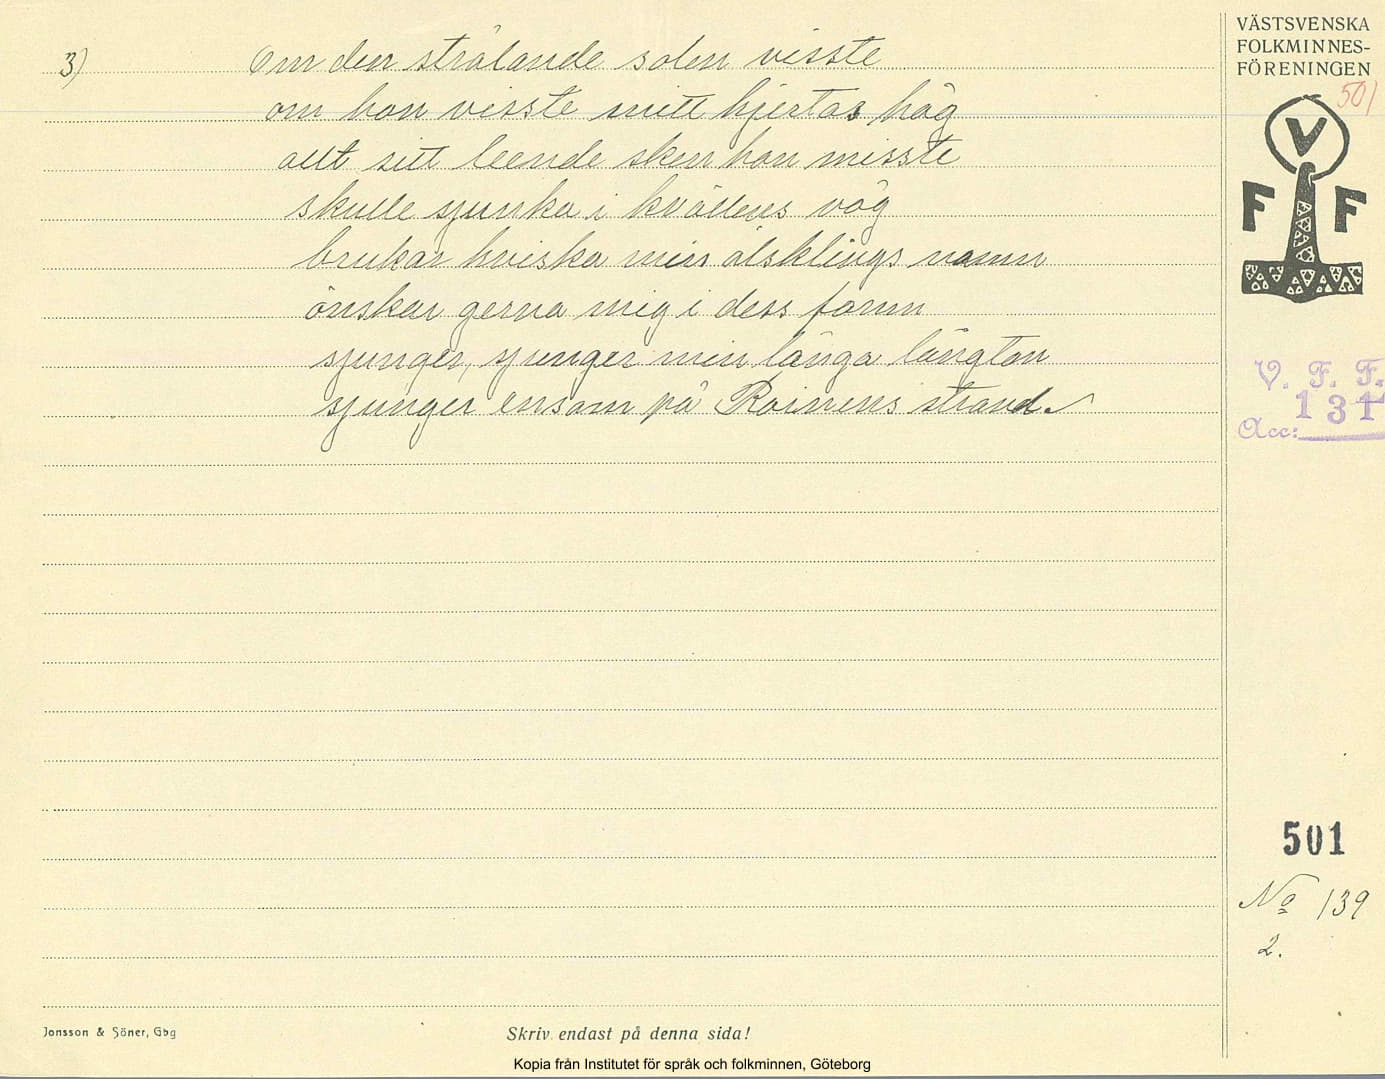 3) Om den strålande solen visste
om hon visste mitt hjertas håg
allt sitt leende sken hon misste
skulle sjunka i kvällens våg
brukar hviska min älsklings namn
önskar gerna mig i dess famn
sjunger, sjunger min långa längtan
sjunger ensam på Roinens strand.
VÄSTSVENSKA
FOLKMINNES-
FÖRENINGEN
501
V
F F
V. F. F.
131
Acc:
501
No 139
2.
Jonsson & Söner, Gbg
Skriv endast på denna sida!
Kopia från Institutet för språk och folkminnen, Göteborg